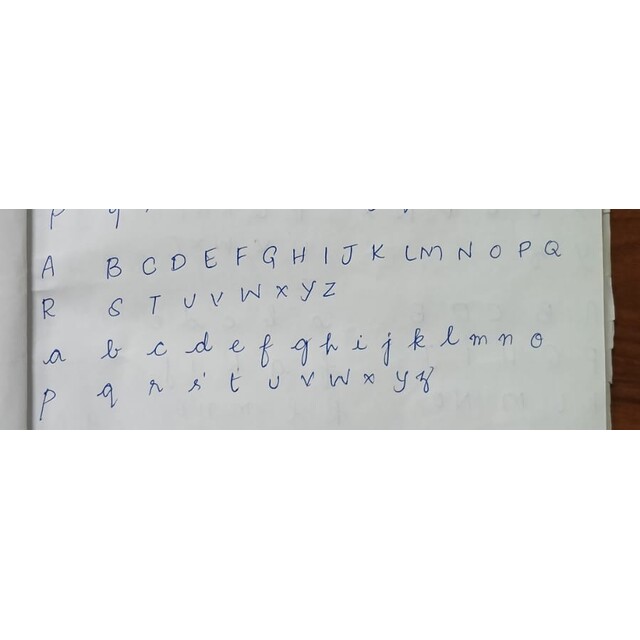 A B C D E F G H I J K L M N O P Q
R S T U V W X Y Z
a b c d e f g h i j k l m n o
p q r s t u v w x y z